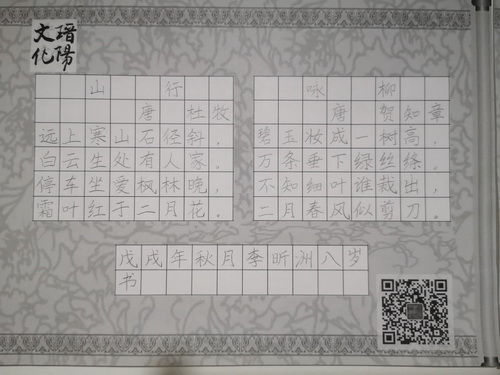 文化
山行
唐 杜牧
远上寒山石径斜，
白云生处有人家。
停车坐爱枫林晚，
霜叶红于二月花。
咏柳
唐 贺知章
碧玉妆成一树高，
万条垂下绿丝绦。
不知细叶谁裁出，
二月春风似剪刀。
戊戌年秋月李昕洲八岁
书